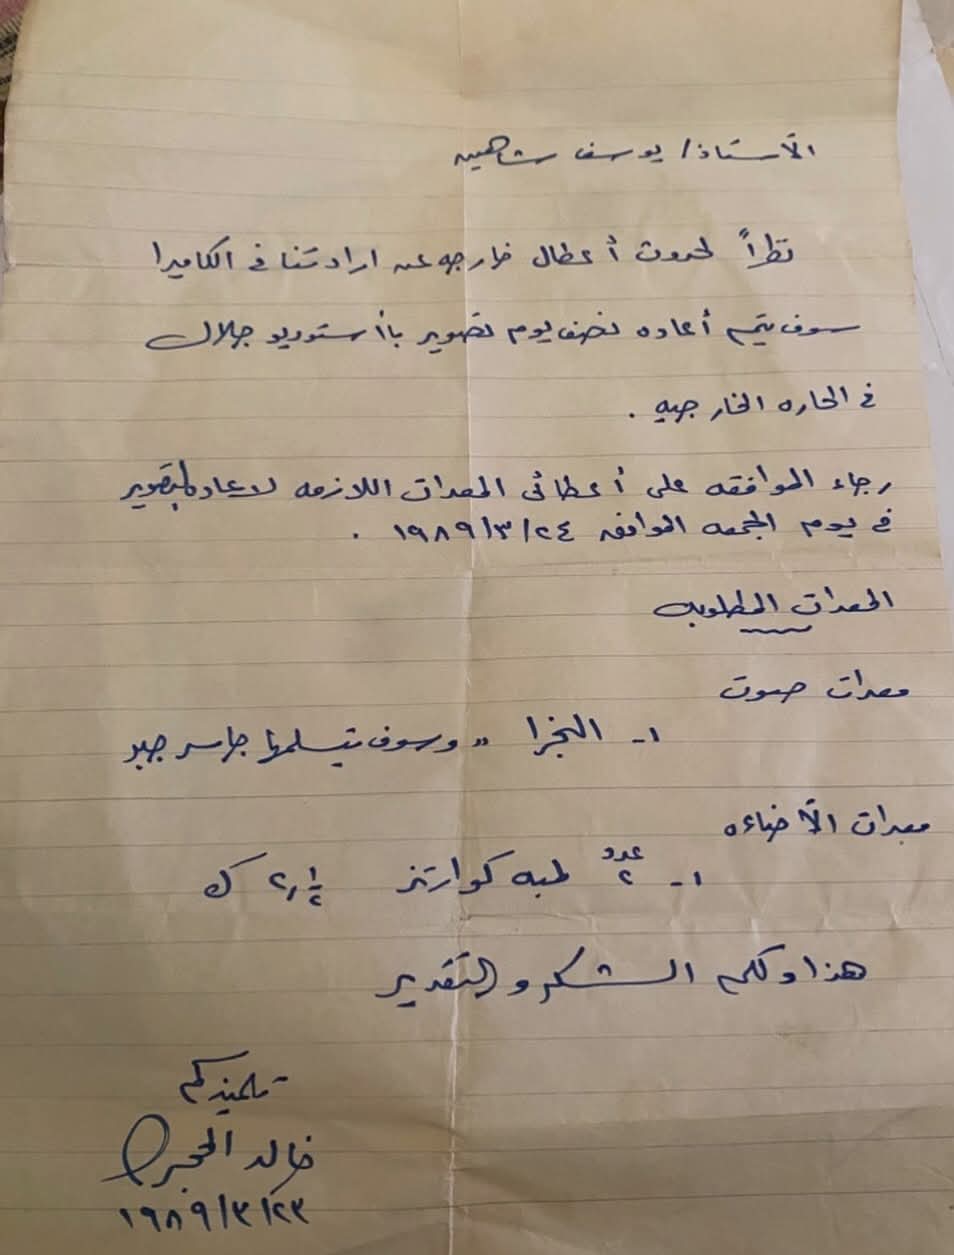 الأستاذ/ يوسف شاهين
نظراً لحدوث أعطال خارجه عن ارادتنا فى الكاميرا
سوف يتم أعاده نصف يوم تصوير بأستوديو جلال
فى الحاره الخارجيه .
رجاء الموافقه على أعطائى المعدات اللازمه لاعاده التصوير
فى يوم الجمعه الموافق ٢٤/٣/١٩٨٩ .
المعدات المطلوبه
معدات صوت
١- النجرا " وسوف يتسلمها جاسر
معدات الأضاءه
١- عدد ٢ لمبه كوارتز ٢٫١/٢ ك
هذا ولكم الشكر والتقدير
تلميذكم
خالد الحجر
٢٣/٣/١٩٨٩